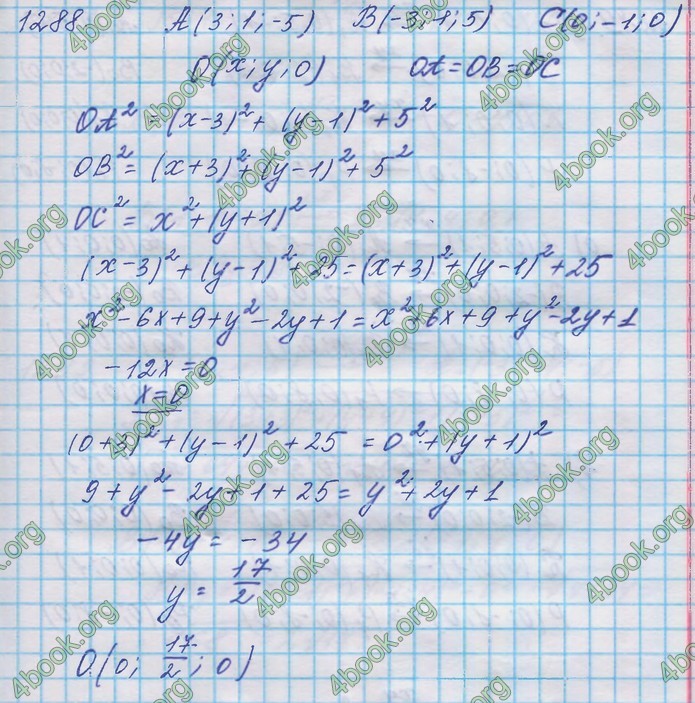 1288. A(3; 1; -5) B(-3; 1; 5) C(0; -1; 0)
O(x; y; 0) OA = OB = OC
OA² = (x-3)² + (y-1)² + 5²
OB² = (x+3)² + (y-1)² + 5²
OC² = x² + (y+1)²
(x-3)² + (y-1)² + 25 = (x+3)² + (y-1)² + 25
x² - 6x + 9 + y² - 2y + 1 = x² + 6x + 9 + y² - 2y + 1
-12x = 0
x = 0
(0+3)² + (y-1)² + 25 = 0² + (y+1)²
9 + y² - 2y + 1 + 25 = y² + 2y + 1
-4y = -34
y = 17/2
O(0; 17/2; 0)
4book.org